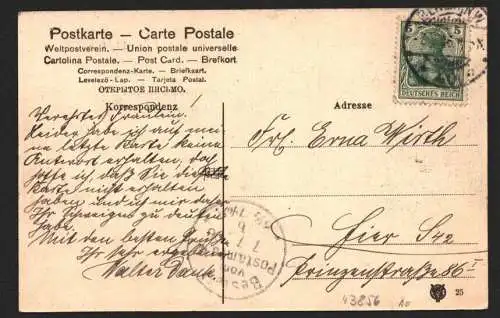 Postkarte — Carte Postale
Weltpostverein. — Union postale universelle
Cartolina Postale. — Post Card. — Brefkort
Correspondenz-Karte. — Briefkaart.
Levelező-Lap. — Tarjeta Postal.
ОТКРЫТОЕ ПИСЬМО.
Korrespondenz
Adresse
5 5
DEUTSCHES REICH
Verehrtes Fräulein!
Leider habe ich auf mei-
ne letzte Karte keine
Antwort erhalten, doch
hoffe ich, daß Sie die
Karte nicht erhalten
haben und ich mir daher
Ihr Schweigen zu deuten
habe.
Mit den besten Grüßen
Ihr sehr ergebener
Walter
Frl. Erna Wirth
Hier S42
Prinzenstraße 86 I
Bestellt
vom
Postamte
43856
25